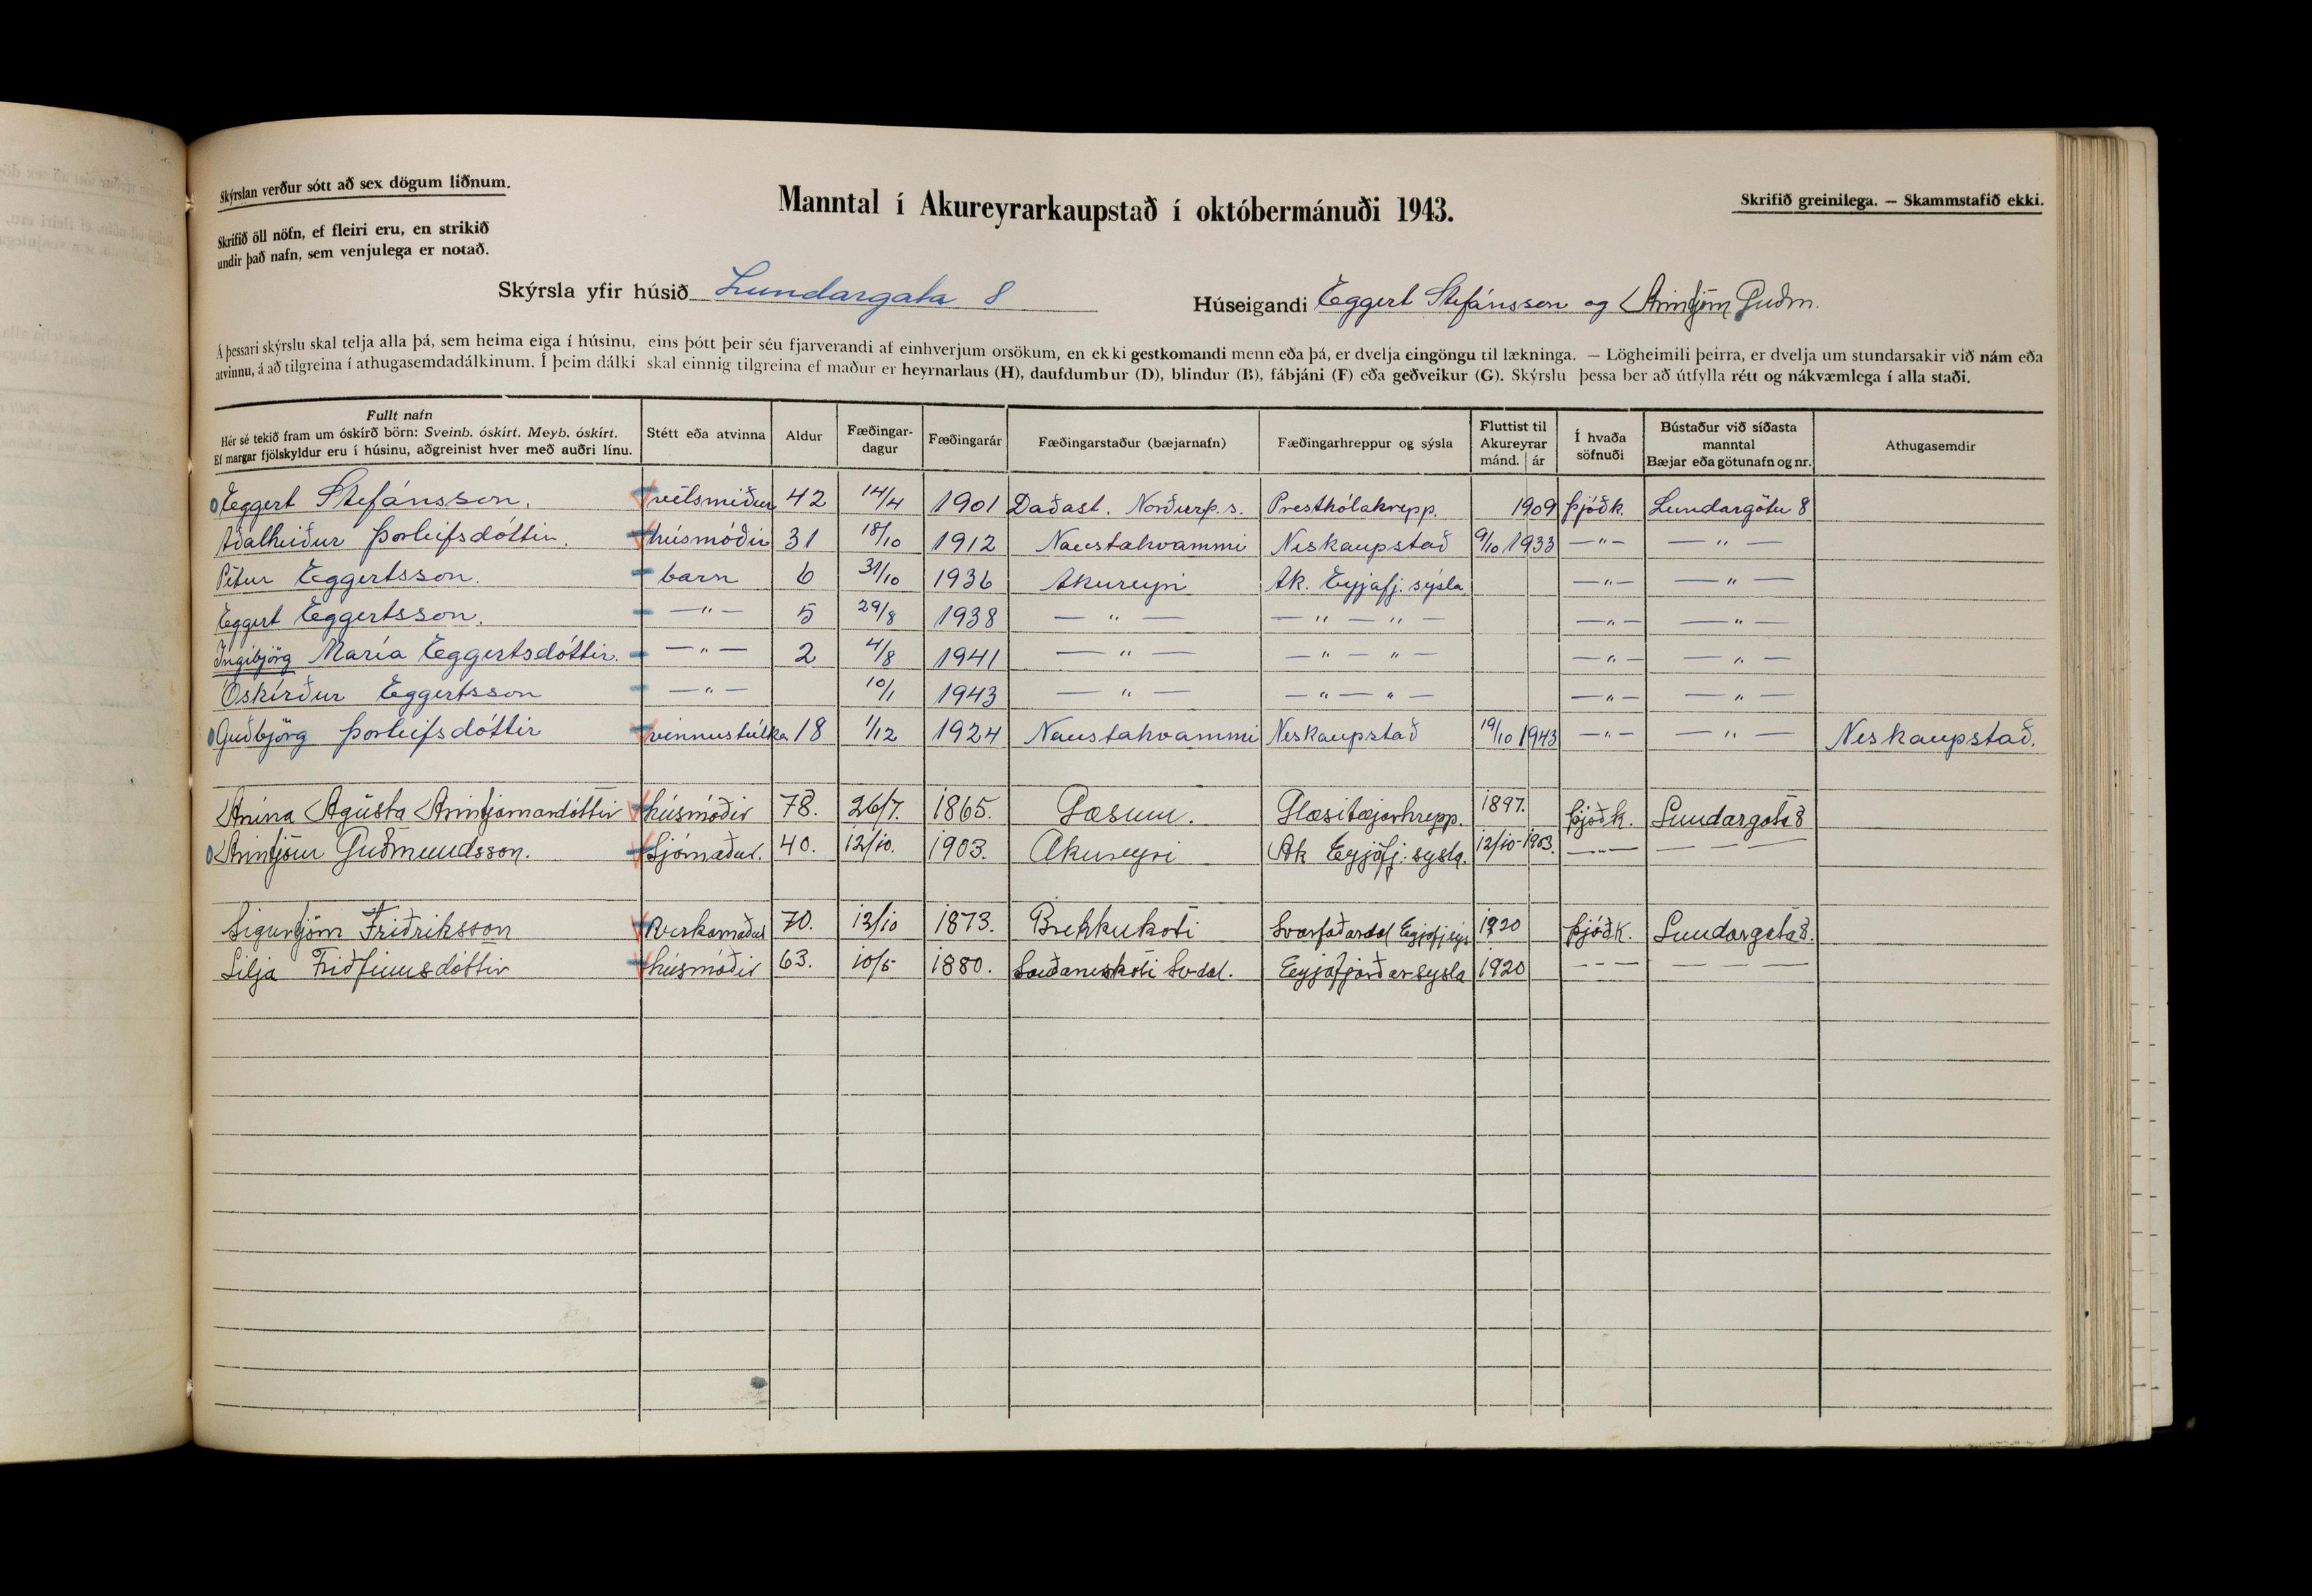 Skýrslan verður sótt að sex dögum liðnum.
Skrifið öll nöfn, ef fleiri eru, en strikið
undir það nafn, sem venjulega er notað.
Manntal í Akureyrarkaupstað í októbermánuði 1943.
Skrifið greinilega. — Skammstafið ekki.
Skýrsla yfir húsið Lundargata 8
Húseigandi Eggert Stefánsson og Arinbjörn Guðm.
Á þessari skýrslu skal telja alla þá, sem heima eiga í húsinu, eins þótt þeir séu fjarverandi af einhverjum orsökum, en ekki gestkomandi menn eða þá, er dvelja eingöngu til lækninga. — Lögheimili þeirra, er dvelja um stundarsakir við nám eða
atvinnu, á að tilgreina í athugasemdadálkinum. Í þeim dálki skal einnig tilgreina ef maður er heyrnarlaus (H), daufdumbur (D), blindur (B), fábjáni (F) eða geðveikur (G). Skýrslu þessa ber að útfylla rétt og nákvæmlega í alla staði.
Fullt nafn
Hér sé tekið fram um óskírð börn: Sveinb. óskírt. Meyb. óskírt.
Ef margar fjölskyldur eru í húsinu, aðgreinist hver með auðri línu.
Stétt eða atvinna
Aldur
Fæðingar-
dagur
Fæðingarár
Fæðingarstaður (bæjarnafn)
Fæðingarhreppur og sýsla
Fluttist til
Akureyrar
mánd. ár
Í hvaða
söfnuði
Bústaður við síðasta
manntal
Bæjar eða götunafn og nr.
Athugasemdir
Eggert Stefánsson. vélsmiður 42 14/4 1901 Daðast. Norðurþ.s. Presthólahrepp. 1909 Þjóðk. Lundargötu 8
Aðalheiður Þorleifsdóttir. húsmóðir 31 18/10 1912 Naustahvammi Neskaupstað 9/10 1933 — " — — " —
Pétur Eggertsson. barn 6 31/10 1936 Akureyri Ak. Eyjafj. sýsla — " — — " —
Eggert Eggertsson. — " — 5 29/8 1938 — " — — " — " — — " — — " —
Ingibjörg María Eggertsdóttir. — " — 2 4/8 1941 — " — — " — " — — " — — " —
Óskírður Eggertsson — " — 10/1 1943 — " — — " — " — — " — — " —
Guðbjörg Þorleifsdóttir vinnustúlka 18 1/12 1924 Naustahvammi Neskaupstað 19/10 1943 — " — — " — Neskaupstað.
Anna Ágústa Arinbjarnardóttir húsmóðir 78. 26/7. 1865. Gæsum. Glæsibæjarhrepp. 1897. Þjóðk. Lundargata 8
Arinbjörn Guðmundsson. Sjómaður. 40. 12/10. 1903. Akureyri Ak Eyjafj. sýsla. 12/10-1903. — " — — — —
Sigurbjörn Friðriksson Verkamaður 70. 12/10 1873. Brekkukoti Svarfaðardal Eyjafj.sýs 1920 Þjóðk. Lundargata 8.
Lilja Friðfinnsdóttir húsmóðir 63. 10/5 1880. Sauðaneskoti Sv.dal. Eyjafjarðarsýsla 1920 — — — — — — —